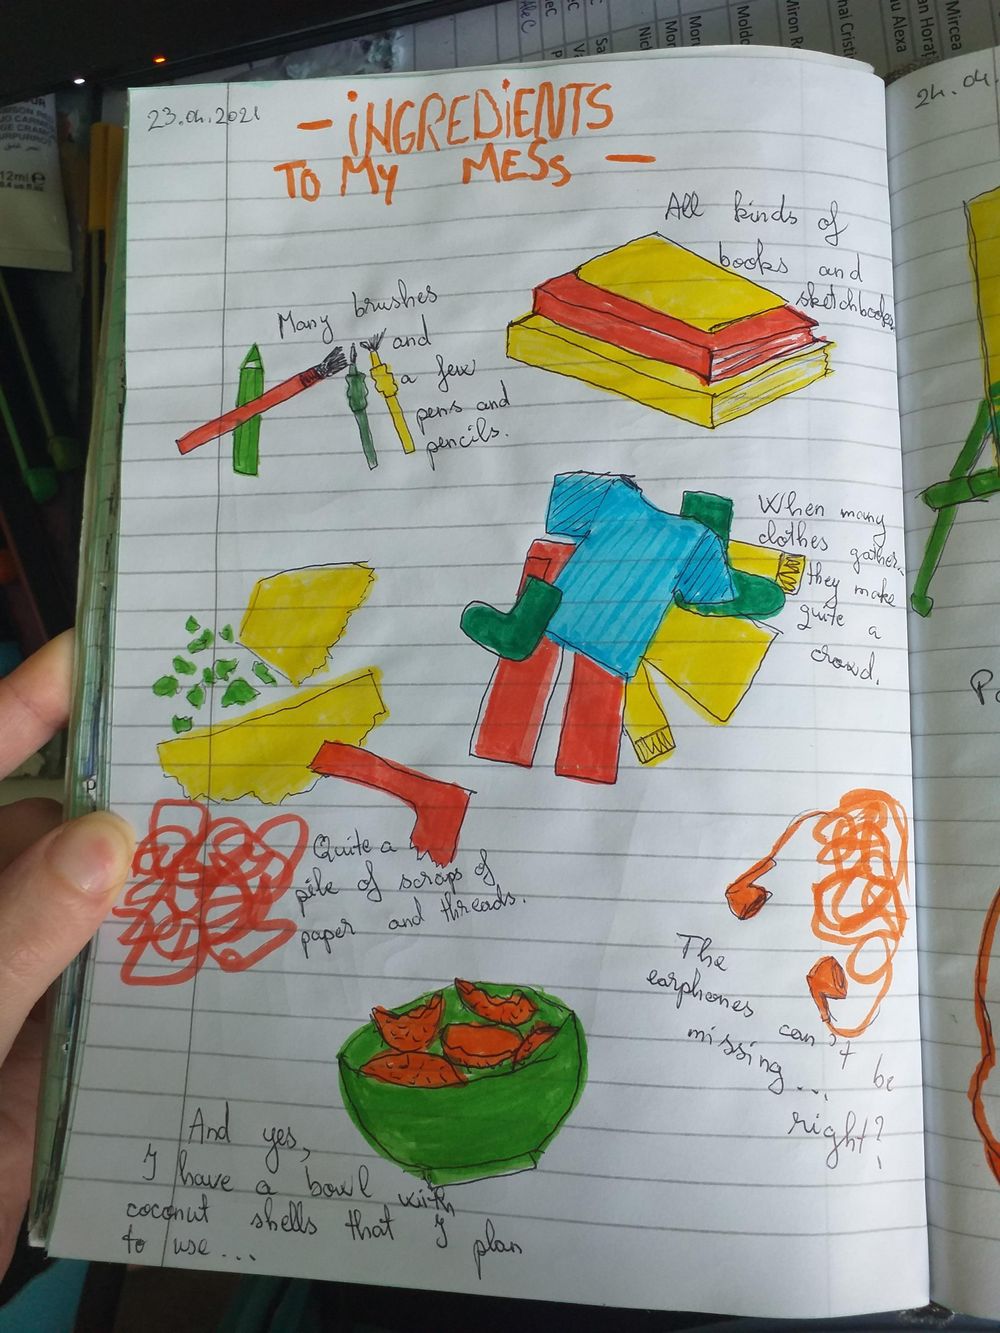 23.04.2021
- INGREDIENTS
TO MY MESS -
All kinds of
books and
sketchbooks
Many brushes
and
a few
pens and
pencils.
When many
clothes gather..
they make
quite a
crowd.
Quite a
pile of scraps of
paper and threads.
The
earphones
can't be
missing...
right?
And yes,
I have a bowl with
coconut shells that I plan
to use...
24.04.
12ml e
AleC
Nic
Mor
Mor
Moldo
Miron R
hai Cristi
u Alexa
an Horaț
Mircea